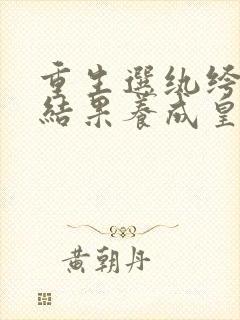 重生選紈絝
結果養成皇
黃朝丹